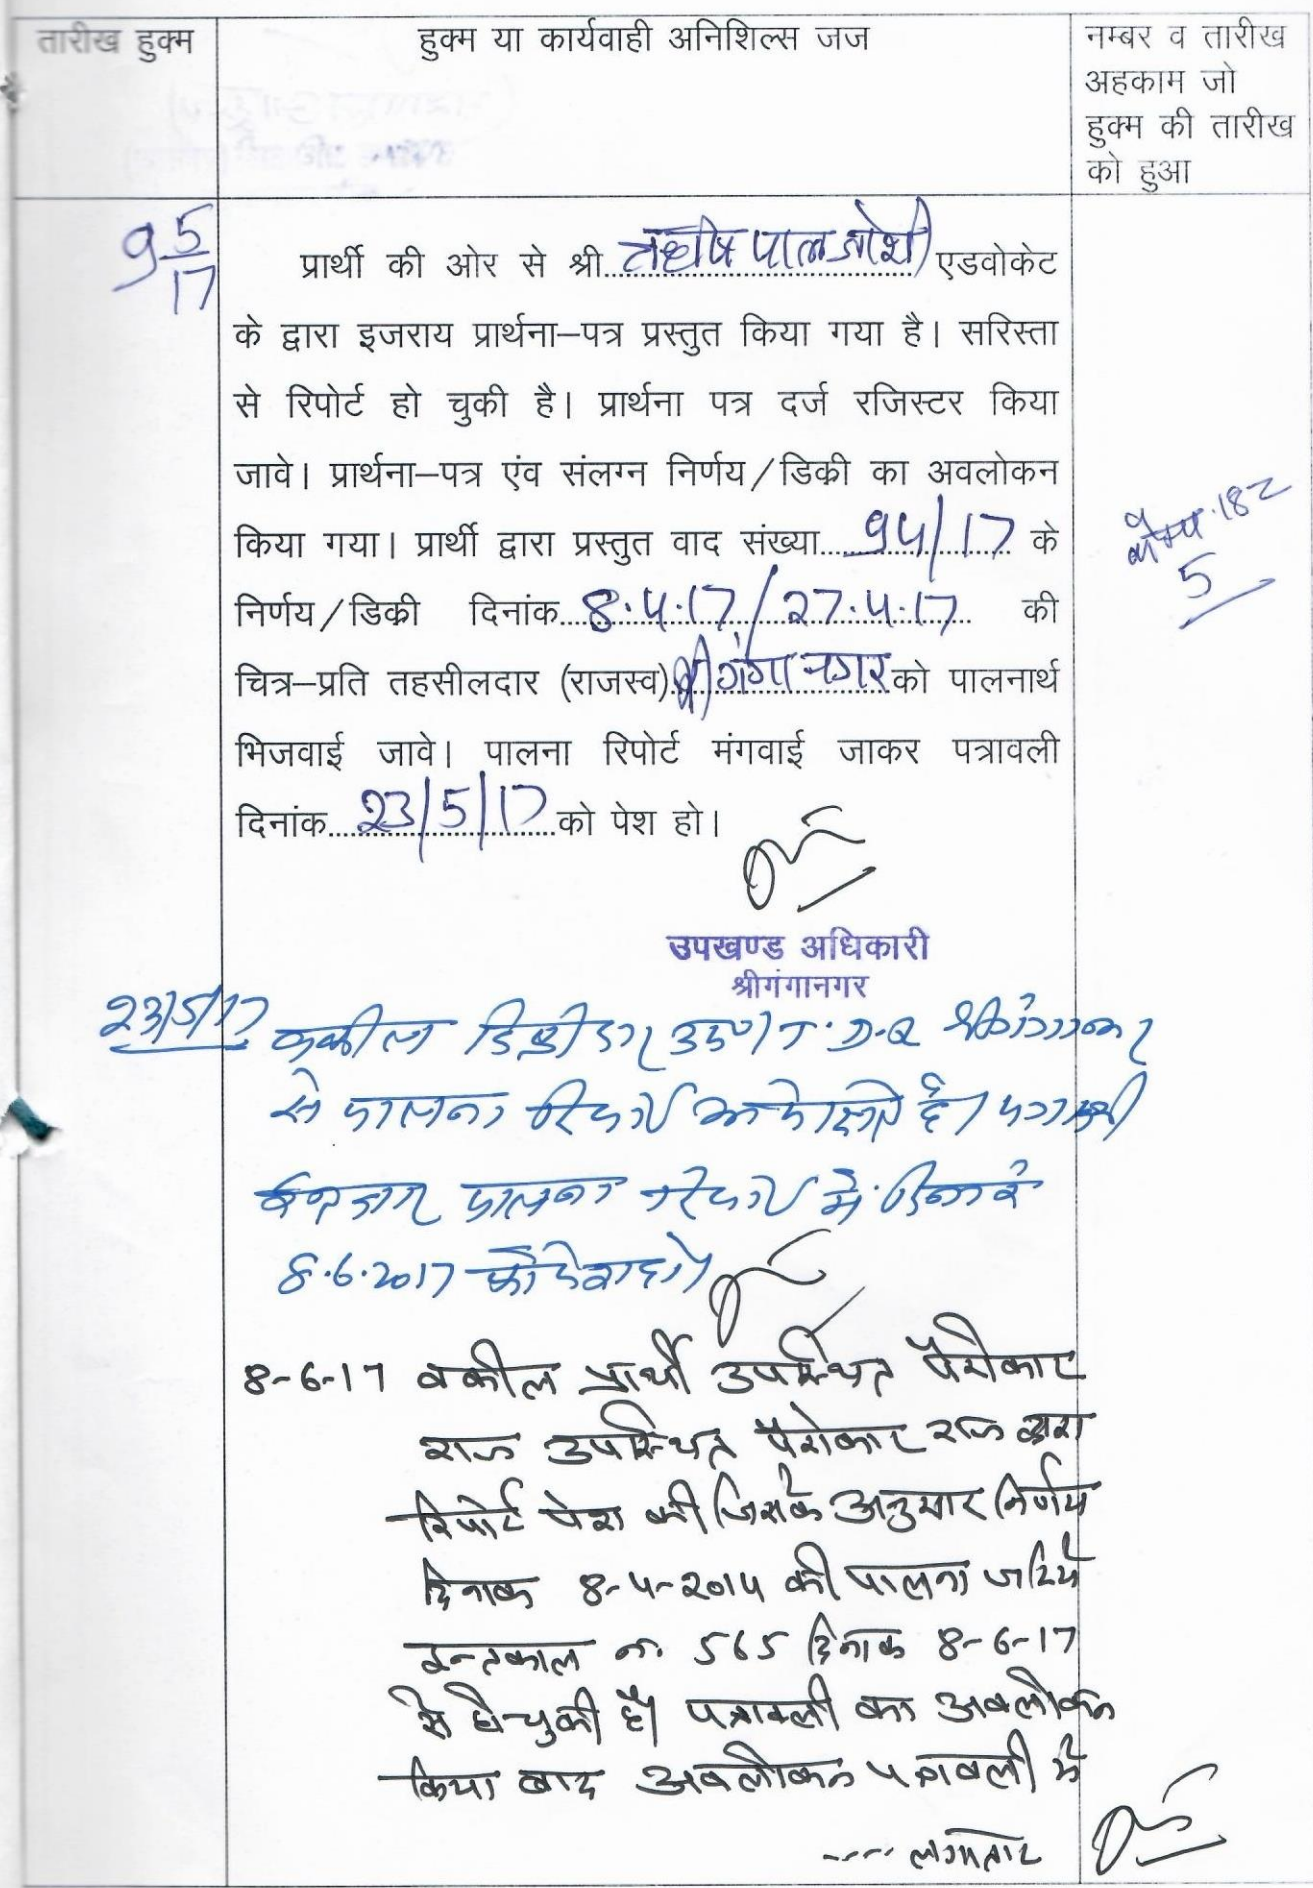 तारीख हुक्म
हुक्म या कार्यवाही अनिशिल्स जज
नम्बर व तारीख
अहकाम जो
हुक्म की तारीख
को हुआ
9 5/17
प्रार्थी की ओर से श्री ऋषि पाल जोशी एडवोकेट
के द्वारा इजराय प्रार्थना–पत्र प्रस्तुत किया गया है। सरिस्ता
से रिपोर्ट हो चुकी है। प्रार्थना पत्र दर्ज रजिस्टर किया
जावे। प्रार्थना–पत्र एंव संलग्न निर्णय/डिकी का अवलोकन
किया गया। प्रार्थी द्वारा प्रस्तुत वाद संख्या 94/17 के
निर्णय/डिकी दिनांक 8.4.17/27.4.17 की
चित्र–प्रति तहसीलदार (राजस्व) श्री गंगानगर को पालनार्थ
भिजवाई जावे। पालना रिपोर्ट मंगवाई जाकर पत्रावली
दिनांक 23/5/17 को पेश हो।
182
5
उपखण्ड अधिकारी
श्रीगंगानगर
23/5/17 वकील डिक्रीदार उप०
से पालना रिपोर्ट है। पत्रावली
इन्तजार पालना रिपोर्ट में दिनांक
8.6.2017 को पेश हो।
8-6-17 वकील प्रार्थी उपस्थित पैरोकार
राज उपस्थित पैरोकार राज द्वारा
रिपोर्ट पेश की जिसके अनुसार निर्णय
दिनाक 8-4-2014 की पालना जरिये
इन्तकाल न. 565 दिनाक 8-6-17
से हो चुकी है। पत्रावली का अवलोकन
किया बाद अवलोकन पत्रावली मे
---- लगातार